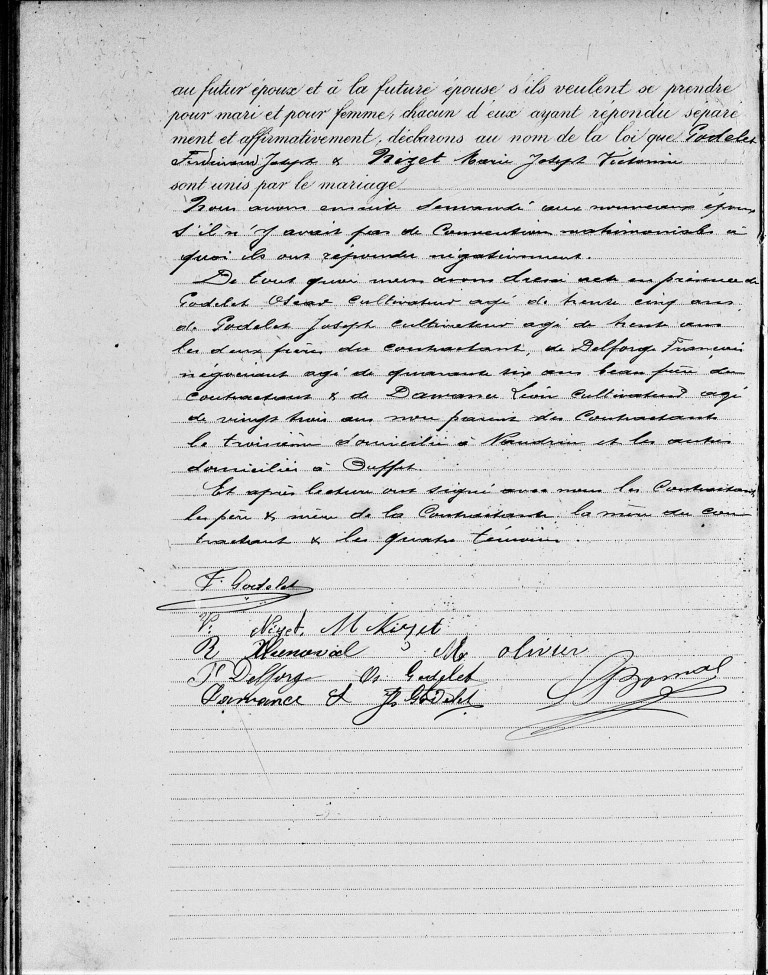 au futur époux et à la future épouse s'ils veulent se prendre
pour mari et pour femme, chacun d'eux ayant répondu séparé
ment et affirmativement, déclarons au nom de la loi que Godelet
Ferdinand Joseph & Nizet Marie Joseph Victorine
sont unis par le mariage
Nous avons ensuite demandé aux nouveaux époux
s'il n'y avait pas de Convention matrimoniale à
quoi ils ont répondu négativement.
De tout quoi nous avons dressé acte en présence de
Godelet Oscar cultivateur agé de trente cinq ans,
de Godelet Joseph cultivateur agé de trent ans
les deux frères du contractant, de Delforge François
négociant agé de quarante six ans beau frère du
contractant & de Damance Léon cultivateur agé
de vingt trois ans non parent des Contractants
le troisième domicilié à Nandrin et les autres
domiciliés à Ouffet.
Et après lecture ont signé avec nous les Contractants,
les père & mère de la Contractante la mère du con
tractant & les quatre témoins.
F. Godelet
V. Nizet. M Nizet
M olivier
F Delforge Os Godelet
Damance L Js Godelet
Bomal